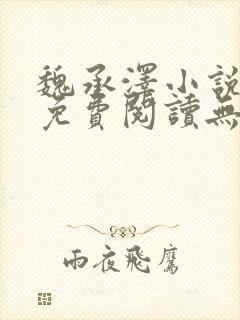 魏承澤小說
免費閱讀無
雨夜飛鷹